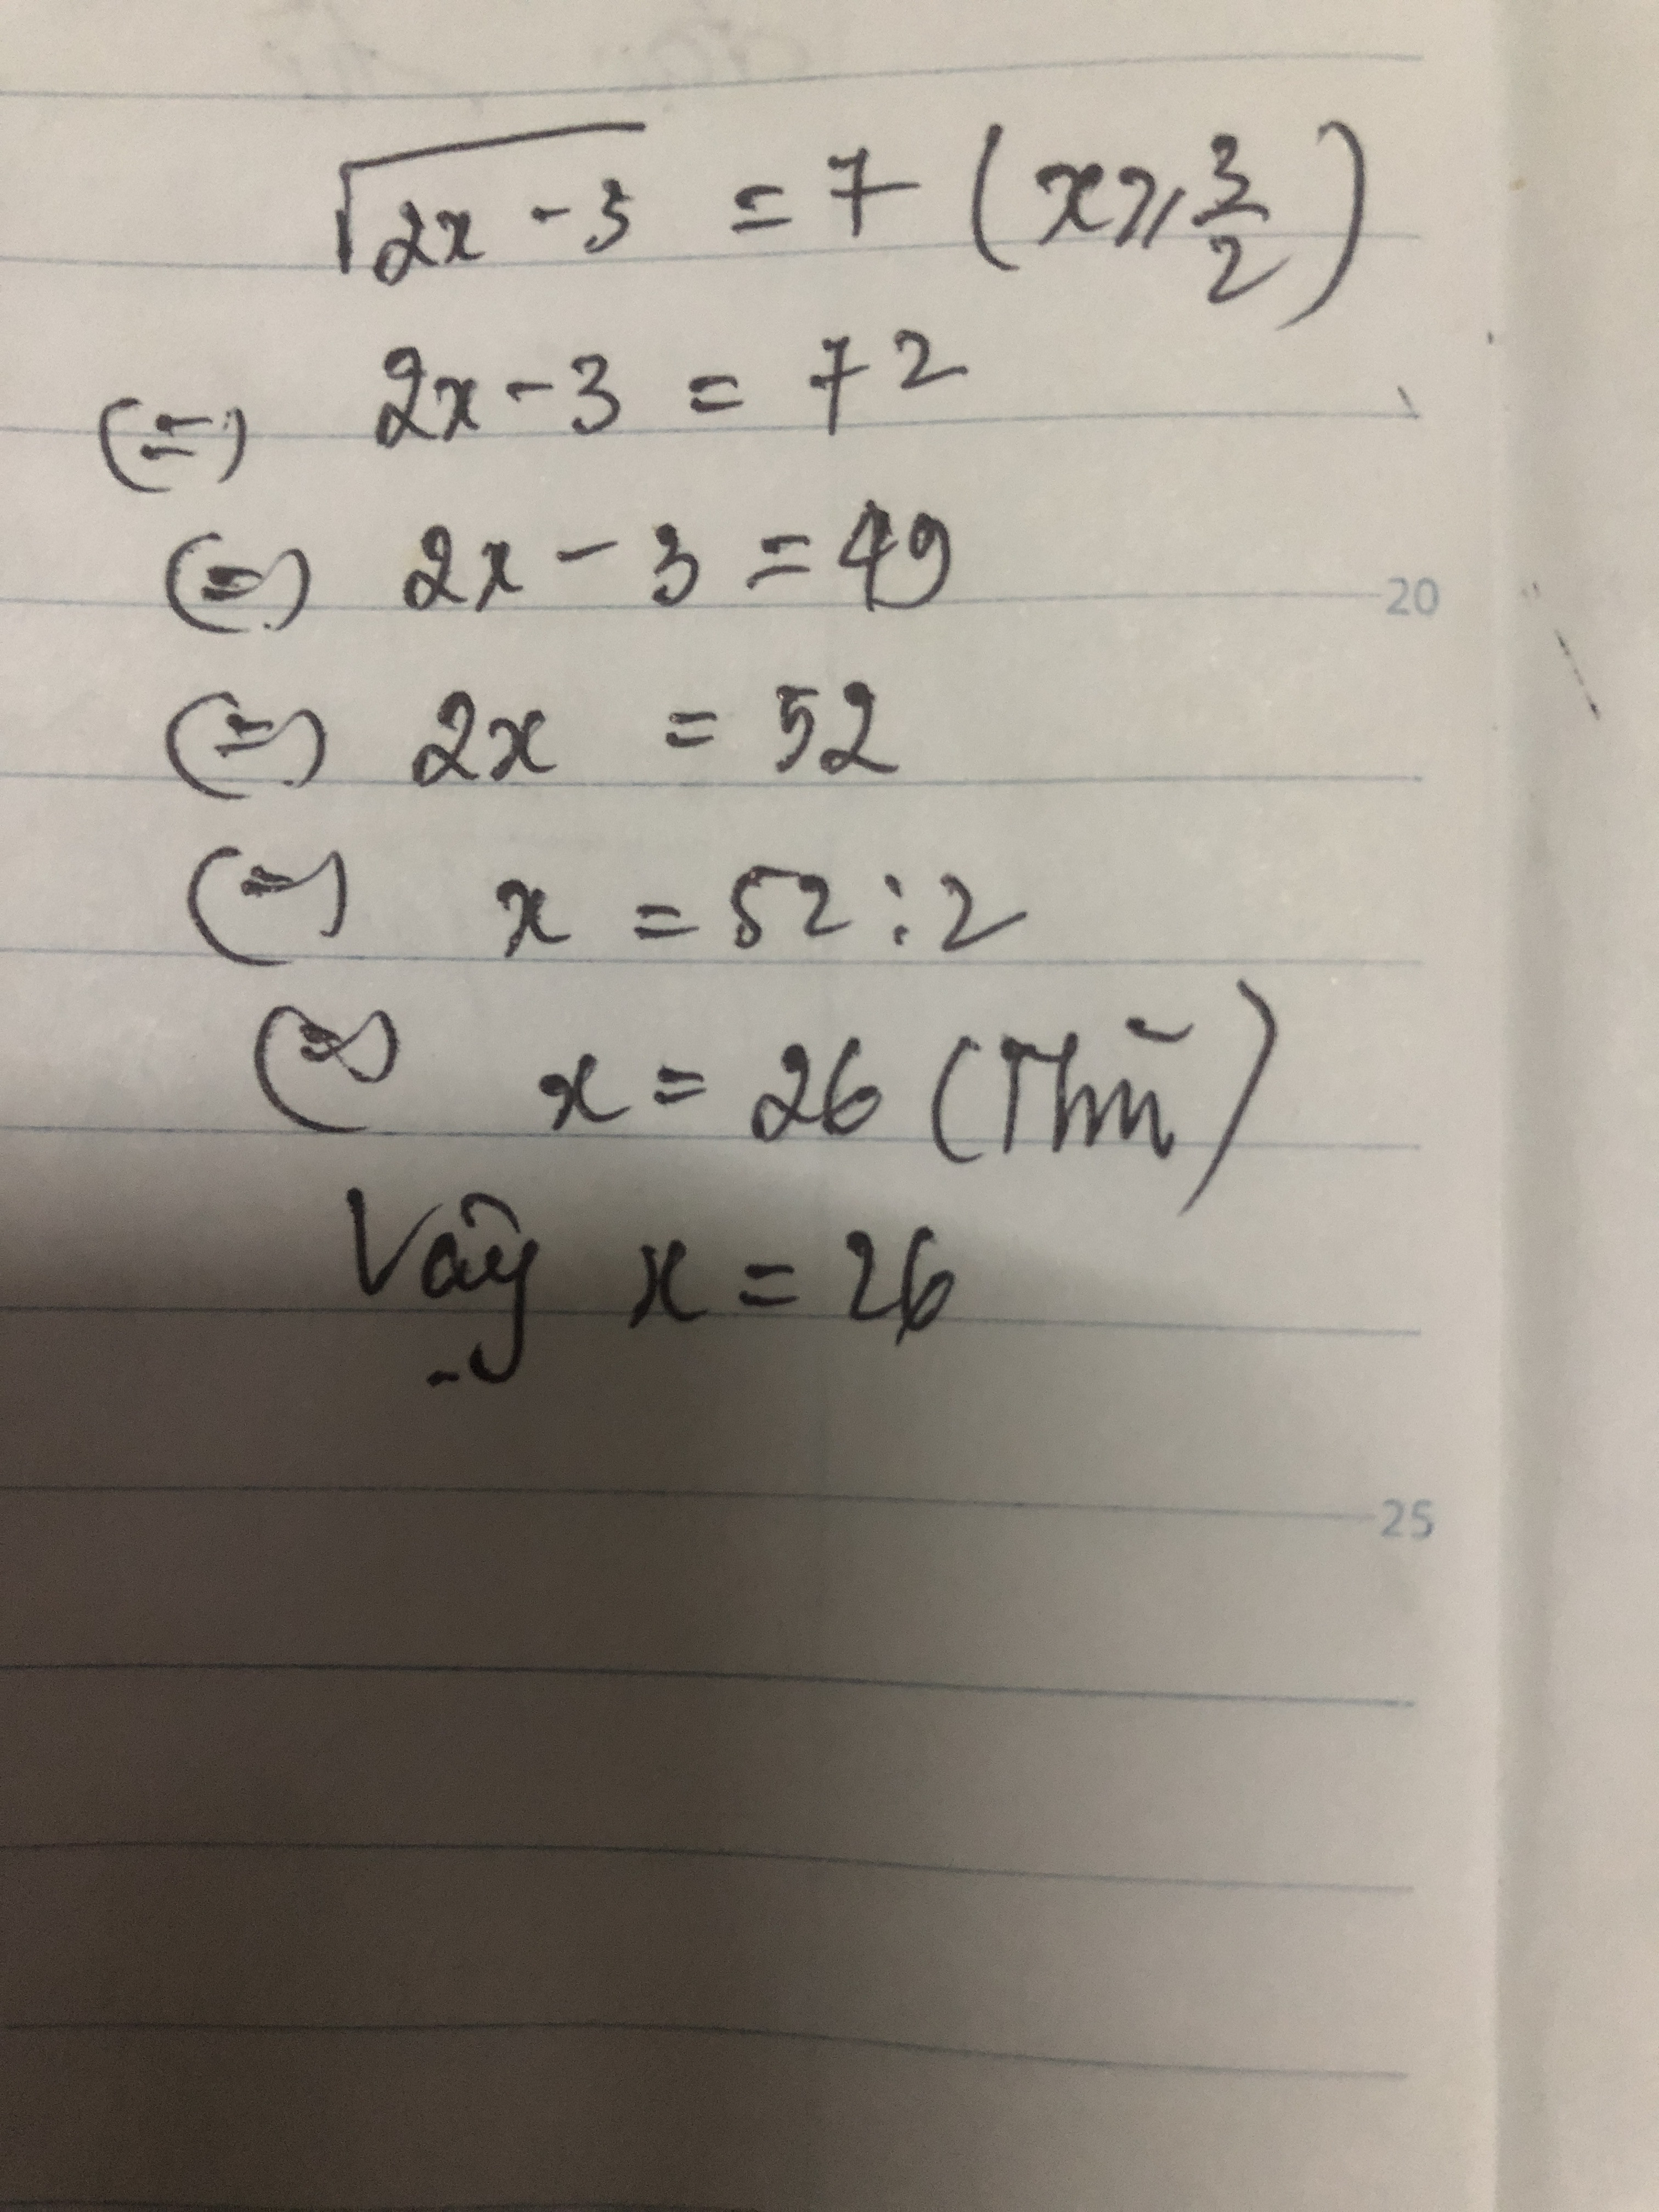 √(2x - 3) = 7 (x ≥ 3/2)
(=) 2x - 3 = 7²
(=) 2x - 3 = 49
20
(=) 2x = 52
(=) x = 52 : 2
(=) x = 26 (
Vậy x = 26
25